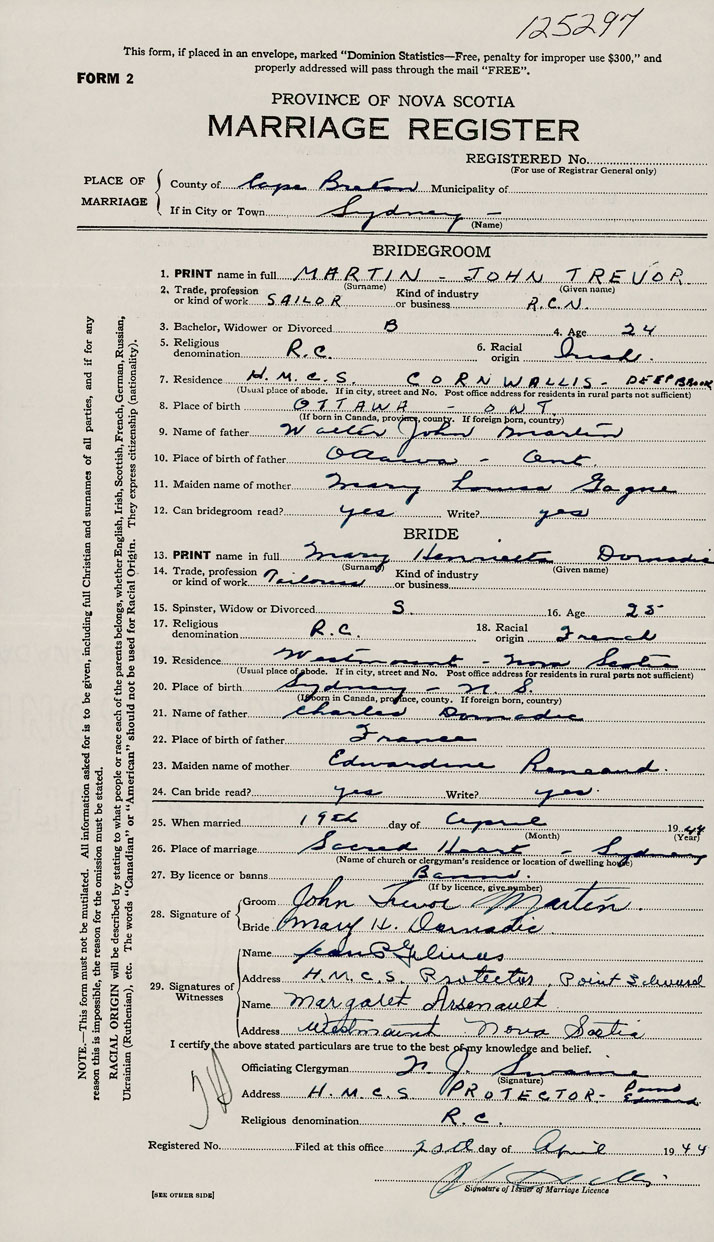 125297
This form, if placed in an envelope, marked "Dominion Statistics—Free, penalty for improper use $300," and
properly addressed will pass through the mail "FREE".
FORM 2
PROVINCE OF NOVA SCOTIA
MARRIAGE REGISTER
REGISTERED No.
(For use of Registrar General only)
PLACE OF MARRIAGE
County of Cape Breton Municipality of
If in City or Town Sydney -
(Name)
BRIDEGROOM
1. PRINT name in full MARTIN - JOHN TREVOR
(Surname) (Given name)
2. Trade, profession or kind of work SAILOR Kind of industry or business R.C.N.
3. Bachelor, Widower or Divorced B 4. Age 24
5. Religious denomination R.C. 6. Racial origin Irish.
7. Residence H.M.C.S. CORNWALLIS - DEEP BROOK
(Usual place of abode. If in city, street and No. Post office address for residents in rural parts not sufficient)
8. Place of birth OTTAWA - ONT.
(If born in Canada, province, county. If foreign born, country)
9. Name of father Walter John Martin
10. Place of birth of father Ottawa - Ont.
11. Maiden name of mother Mary Louisa Gagne
12. Can bridegroom read? yes Write? yes
BRIDE
13. PRINT name in full Mary Henrietta Dornadic
(Surname) (Given name)
14. Trade, profession or kind of work Tailoress Kind of industry or business
15. Spinster, Widow or Divorced S. 16. Age 25
17. Religious denomination R.C. 18. Racial origin French
19. Residence Westmount - Nova Scotia
(Usual place of abode. If in city, street and No. Post office address for residents in rural parts not sufficient)
20. Place of birth Sydney - N.S.
(If born in Canada, province, county. If foreign born, country)
21. Name of father Charles Dornadic
22. Place of birth of father France
23. Maiden name of mother Edwardine
24. Can bride read? yes Write? yes.
25. When married 19th day of April 1944
(Month) (Year)
26. Place of marriage Sacred Heart - Sydney
(Name of church or clergyman's residence or location of dwelling house)
27. By licence or banns Banns.
(If by licence, give number)
28. Signature of
Groom John Trevor Martin.
Bride Mary H. Dornadic
29. Signatures of Witnesses
Name Jean P Gelinas
Address H.M.C.S. Protector, Point Edward
Name Margaret Arsenault
Address Westmount Nova Scotia
I certify the above stated particulars are true to the best of my knowledge and belief.
Officiating Clergyman
(Signature)
Address H.M.C.S PROTECTOR - Point Edward
Religious denomination R.C.
Registered No. Filed at this office 20th day of April 1944
Signature of Issuer of Marriage Licence
[SEE OTHER SIDE]
NOTE.—This form must not be mutilated. All information asked for is to be given, including full Christian and surnames of all parties, and if for any
reason this is impossible, the reason for the omission must be stated.
RACIAL ORIGIN will be described by stating to what people or race each of the parents belongs, whether English, Irish, Scottish, French, German, Russian,
Ukrainian (Ruthenian), etc. The words "Canadian" or "American" should not be used for Racial Origin. They express citizenship (nationality).